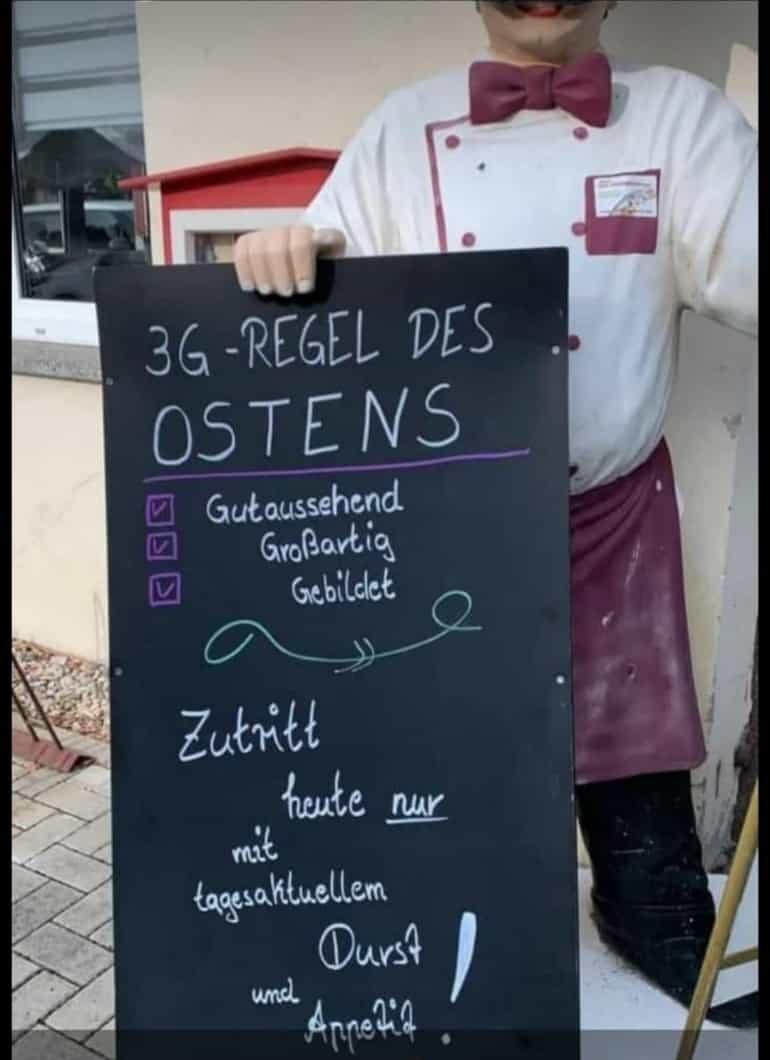 3G-REGEL DES
OSTENS
Gutaussehend
Großartig
Gebildet
Zutritt
heute nur
mit
tagesaktuellem
Durst
und
Appetit !